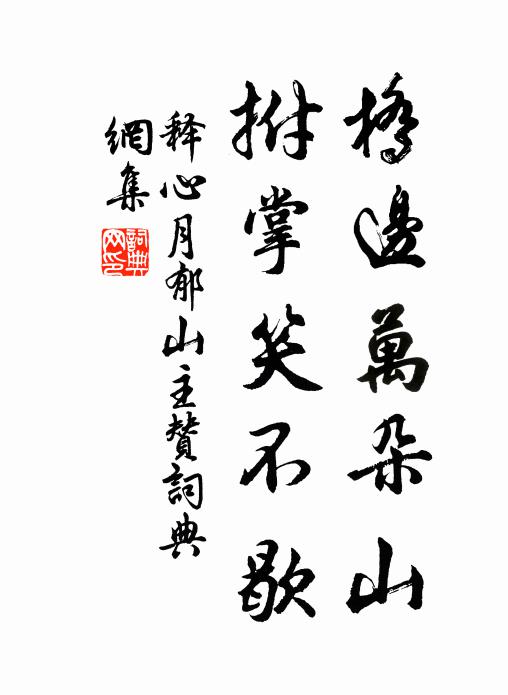 橋邊萬朵山
拊掌笑不歇
释心月郁山主贊詞典
網集
詞典網印